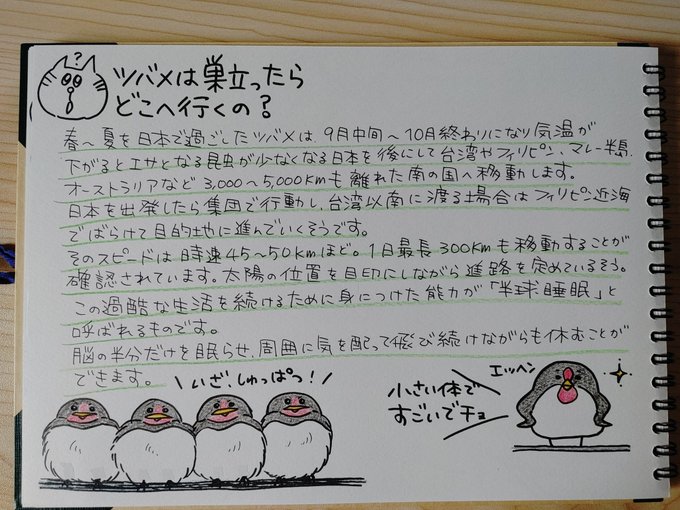 ?
ツバメは巣立ったら
どこへ行くの？
春～夏を日本で過ごしたツバメは、9月中間～10月終わりになり気温が
下がるとエサとなる昆虫が少なくなる日本を後にして台湾やフィリピン、マレー半島、
オーストラリアなど3,000～5,000kmも離れた南の国へ移動します。
日本を出発したら集団で行動し、台湾以南に渡る場合はフィリピン近海
でばらけて目的地に進んでいくそうです。
そのスピードは時速45～50kmほど。1日最長300kmも移動することが
確認されています。太陽の位置を目印にしながら進路を定めているそう。
この過酷な生活を続けるために身につけた能力が「半球睡眠」と
呼ばれるものです。
脳の半分だけを眠らせ、周囲に気を配って飛び続けながらも休むことが
できます。
いざ、しゅっぱつ！
エッヘン
小さい体で
すごいでチョ